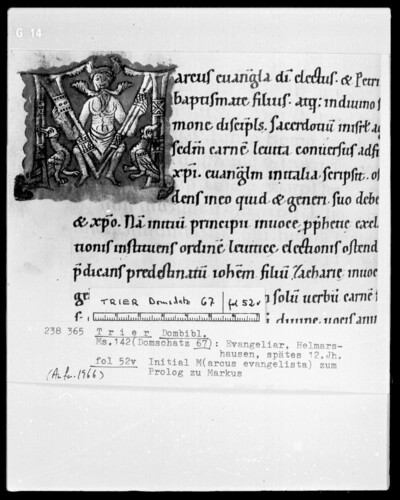 G 14
M arcus euangła dī electus. & Petri
baptismate filius. atq; in diuino s
mone discipls. sacerdotiū in isrł a
sedm carnē leuita conuersus ad fi
xpī. euanglm in italia scripsit. os
dens in eo quid & generi suo debe
& xpo. Nā initiū principii in uoce pphetice excl
tionis instituens ordinē leuitice electionis ostend
p̄dicans predestinatū iohem filiū Zacharie in uoce
TRIER Domschatz 67 fol 52v
n solū uerbū carnē
diuine uocis
238 365 Trier Dombibl.
Ms.142(Domschatz 67): Evangeliar, Helmars-
hausen, spätes 12.Jh.
fol 52v Initial M(arcus evangelista) zum
(Aufn. 1966) Prolog zu Markus